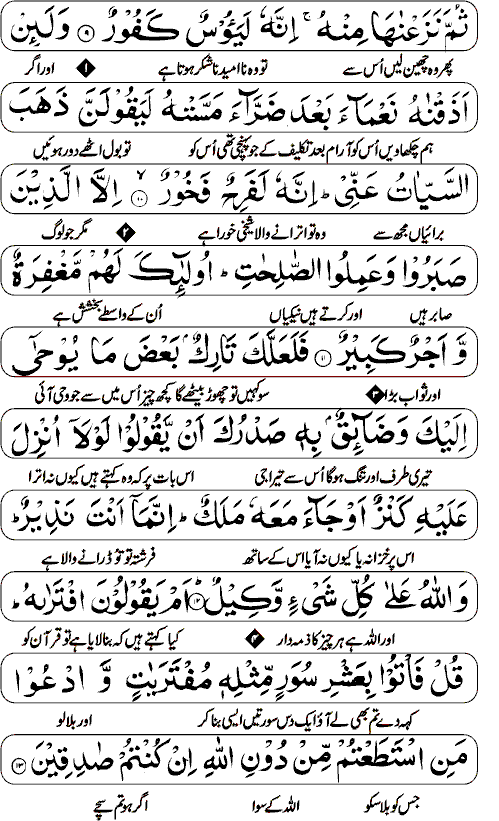 ثُمَّ نَزَعْنٰهَا مِنْهُ ۚ اِنَّهٗ لَيَـُٔوْسٌ كَفُوْرٌ ۹ وَلَىِٕنْ
پھر وہ چھین لیں اُس سے تو وہ نا امید ناشکر ہوتا ہے ۱ اور اگر
اَذَقْنٰهُ نَعْمَآءَ بَعْدَ ضَرَّآءَ مَسَّتْهُ لَيَقُوْلَنَّ ذَهَبَ
ہم چکھاویں اُس کو آرام بعد تکلیف کے جو پہنچی تھی اُس کو تو بول اٹھے دور ہوئیں
السَّيِّاٰتُ عَنِّىْ ؕ اِنَّهٗ لَفَرِحٌ فَخُوْرٌ ۱۰ اِلَّا الَّذِيْنَ
برائیاں مجھ سے وہ تو اترانے والا شیخی خورا ہے ۲ مگر جو لوگ
صَبَرُوْا وَعَمِلُوا الصّٰلِحٰتِ ؕ اُولٰٓىِٕكَ لَهُمْ مَّغْفِرَةٌ
صابر ہیں اور کرتے ہیں نیکیاں اُن کے واسطے بخشش ہے
وَّ اَجْرٌ كَبِيْرٌ ۱۱ فَلَعَلَّكَ تَارِكٌۢ بَعْضَ مَا يُوْحٰٓى
اور ثواب بڑا ۳ سو کہیں تو چھوڑ بیٹھے گا کچھ چیز اُس میں سے جو وحی آئی
اِلَيْكَ وَضَآىِٕقٌۢ بِهٖ صَدْرُكَ اَنْ يَّقُوْلُوْا لَوْلَاۤ اُنْزِلَ
تیری طرف اور تنگ ہو گا اُس سے تیرا جی اس بات پر کہ وہ کہتے ہیں کیوں نہ اترا
عَلَيْهِ كَنْزٌ اَوْ جَآءَ مَعَهٗ مَلَكٌ ؕ اِنَّمَاۤ اَنْتَ نَذِيْرٌ ؕ
اس پر خزانہ یا کیوں نہ آیا اس کے ساتھ فرشتہ تو تو ڈرانے والا ہے
وَاللّٰهُ عَلٰى كُلِّ شَىْءٍ وَّكِيْلٌ ؕ ۱۲ اَمْ يَقُوْلُوْنَ افْتَرٰىهُ ؕ
اور اللہ ہے ہر چیز کا ذمہ دار ۴ کیا کہتے ہیں کہ بنا لایا ہے تو قرآن کو
قُلْ فَاْتُوْا بِعَشْرِ سُوَرٍ مِّثْلِهٖ مُفْتَرَيٰتٍ وَّ ادْعُوْا
کہہ دے تم بھی لے آؤ ایک دس سورتیں ایسی بنا کر اور بلا لو
مَنِ اسْتَطَعْتُمْ مِّنْ دُوْنِ اللّٰهِ اِنْ كُنْتُمْ صٰدِقِيْنَ ۱۳
جس کو بلا سکو اللہ کے سوا اگر ہو تم سچے